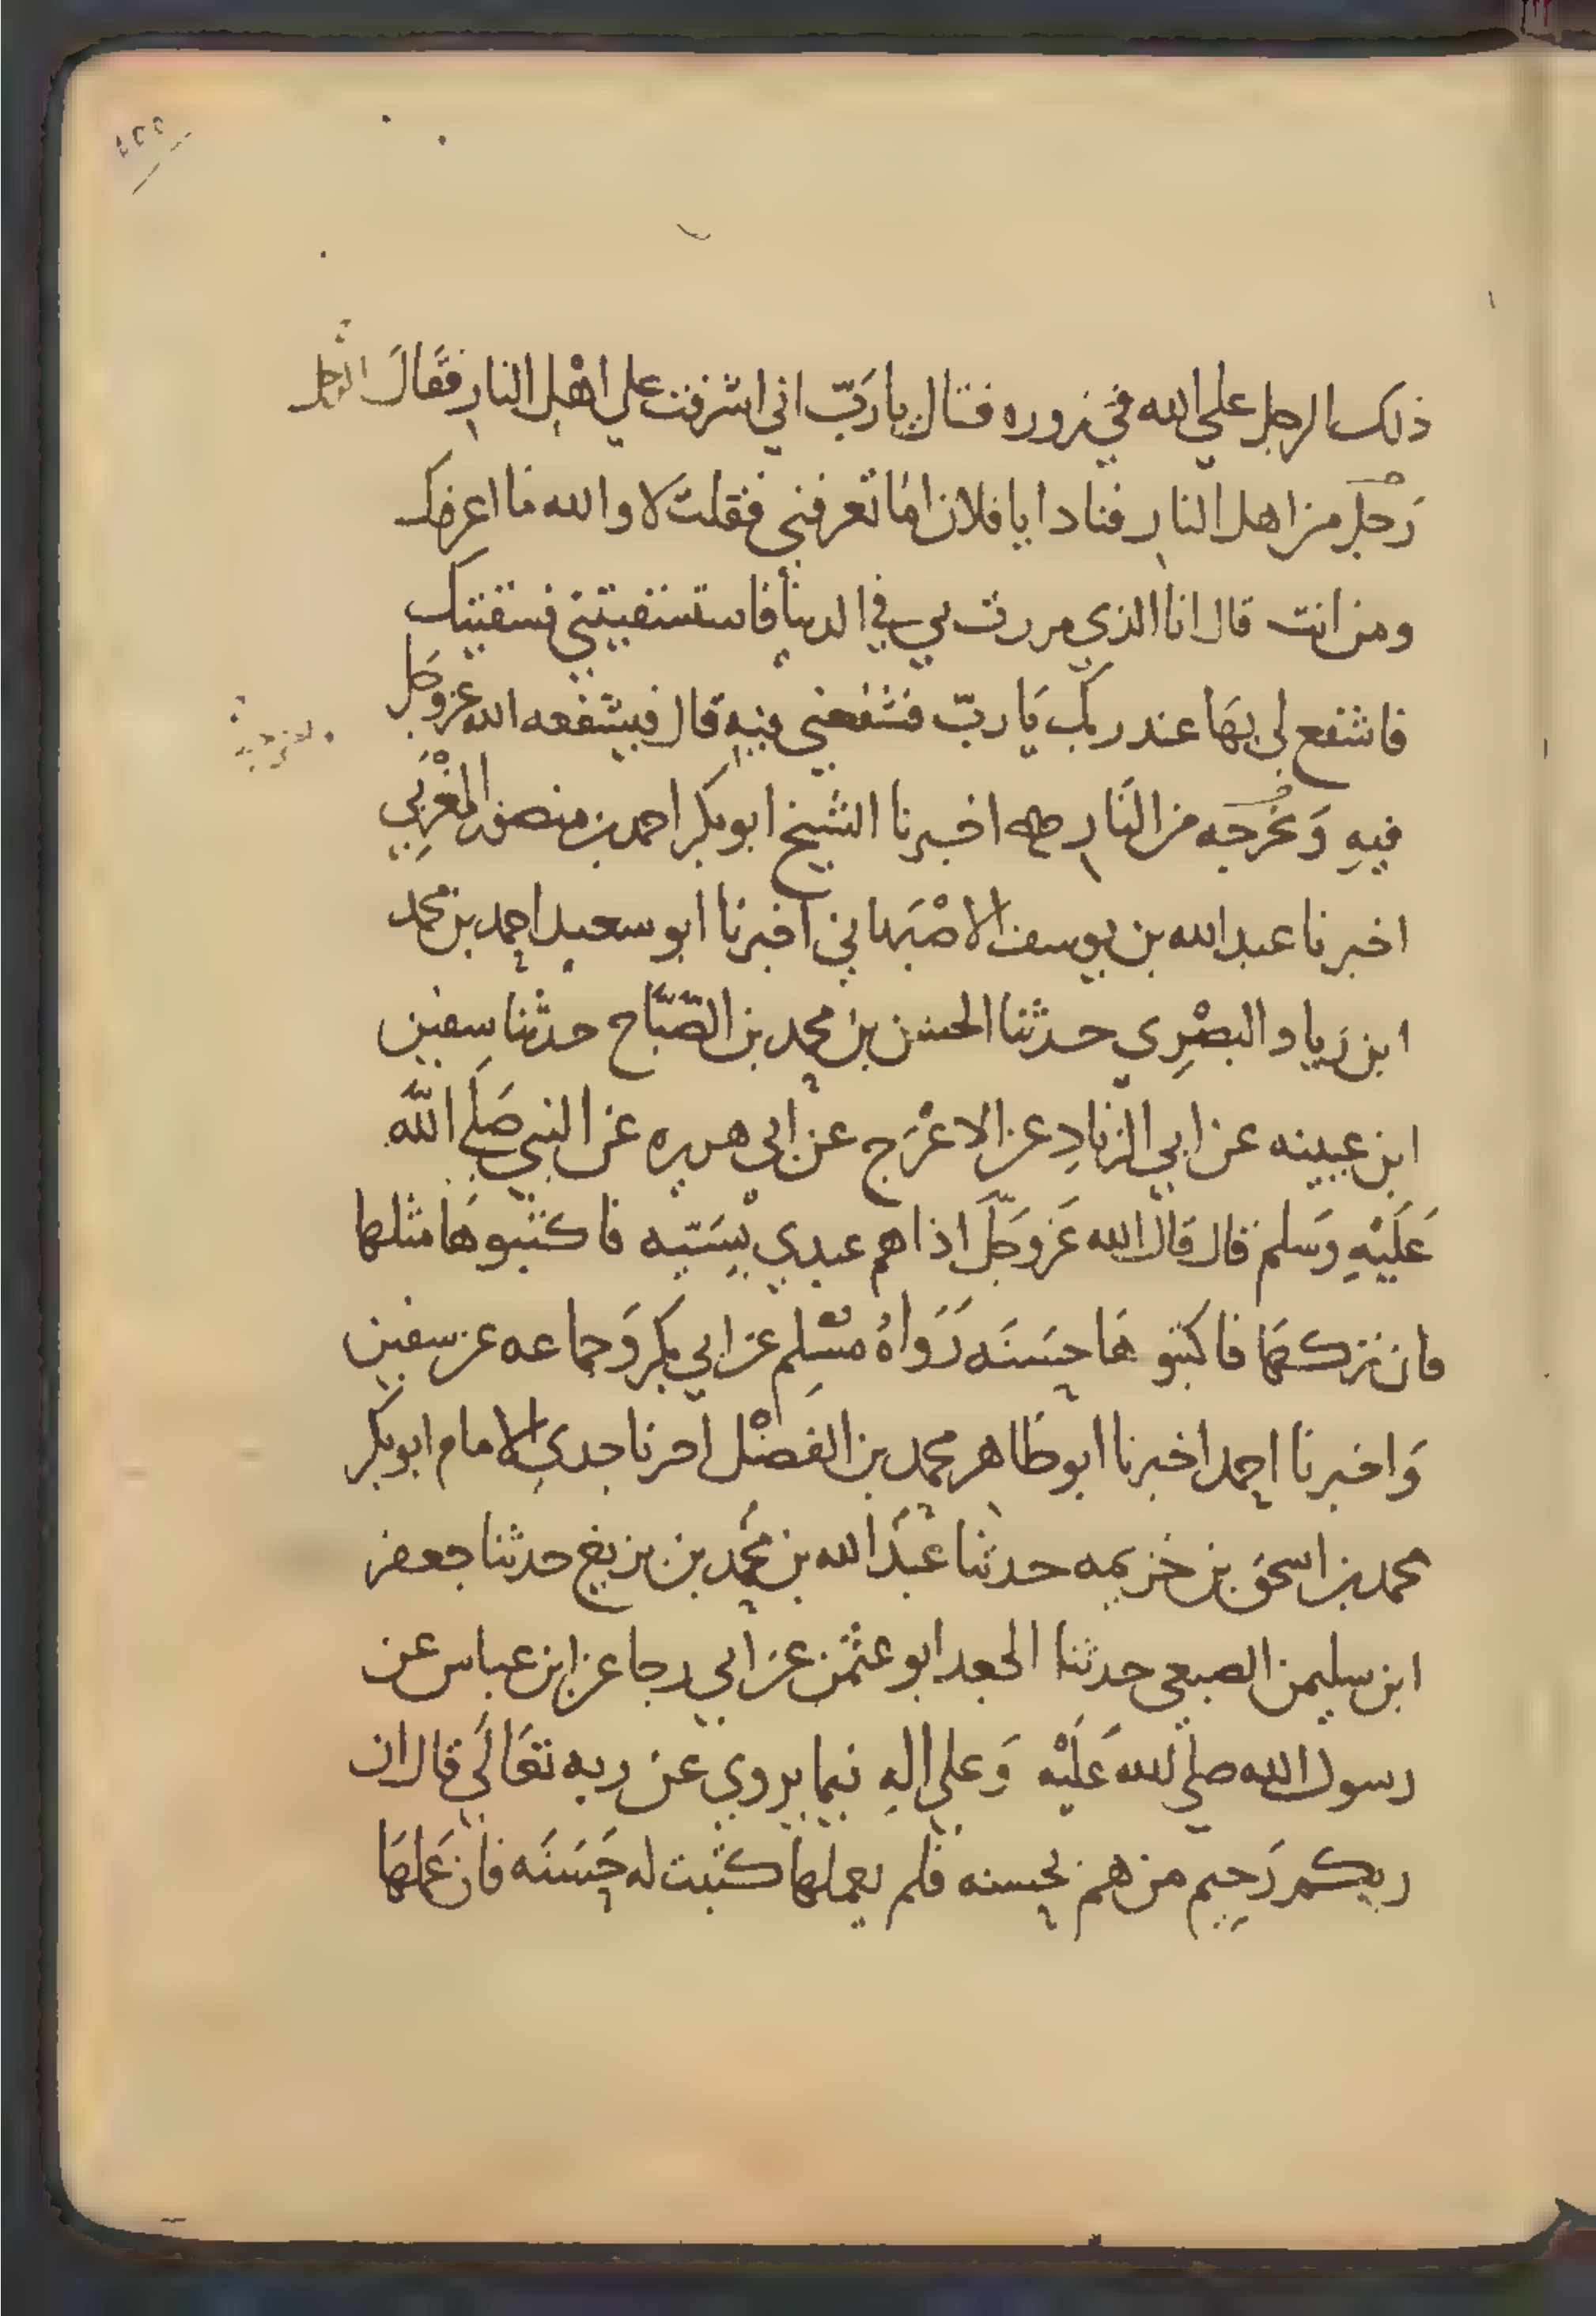 ذلك الرجل علي الله في زوره فقال يا رَبّ اني اشرفت علي اهْل النار فقَالَ الرجل
رَجل من اهل النار فنادا يا فلان امَا تعرفني فقلت لا والله ما اعرفك
ومن انت قال انا الذي مررت بي في الدنيا فاستسقيتني فسقيتك
فاشفع لي بهَا عند ربك يَا ربّ فشفعني فيهِ قال فيشفعه الله عز وَجل
فيهِ وَيخُرجه من النَار اخبرنا الشيخ ابو بكر احمد بن منصور المغْربي
اخبرنا عبد الله بن يوسف الاصْبَهاني اخبرنا ابو سعيد احمد بن محمد
ابن زياد البصْرِي حدثنا الحسن بن محمد بن الصّبَّاح حدثنا سفين
ابن عيينه عن ابي الزنادِ عن الاعْرَج عن ابي هريره عن النبي صَلي الله
عَلَيْهِ وَسَلم قال قَال الله عَز وَجَلَّ اذا هم عبدي بسَيّيه فاكتبوهَا مثلها
فان تركهَا فاكتبو هَا حسَنَه رَوَاهُ مسْلِم عن ابي بكر وَجماعه عن سفين
وَاخبرنا احمد اخبرنا ابو طَاهر محمد بن الفضْل احرنا جدي الامام ابو بكر
محمد بن اسحق بن خزيمه حدثنا عبْدَ الله بن محَمد بن بزيغ حدثنا جعفر
ابن سليمن الصبعي حدثنا الجعد ابو عثْمن عن ابي رجا عن ابن عباس عن
رسول الله صلي الله عَلَيْه وَعلي الهِ فيما يروي عن ربه تعَالَي قال ان
ربكم رَحِيم من هم بحسنه فلم يعملها كتبت له حَسَنَه فان عَملهَا